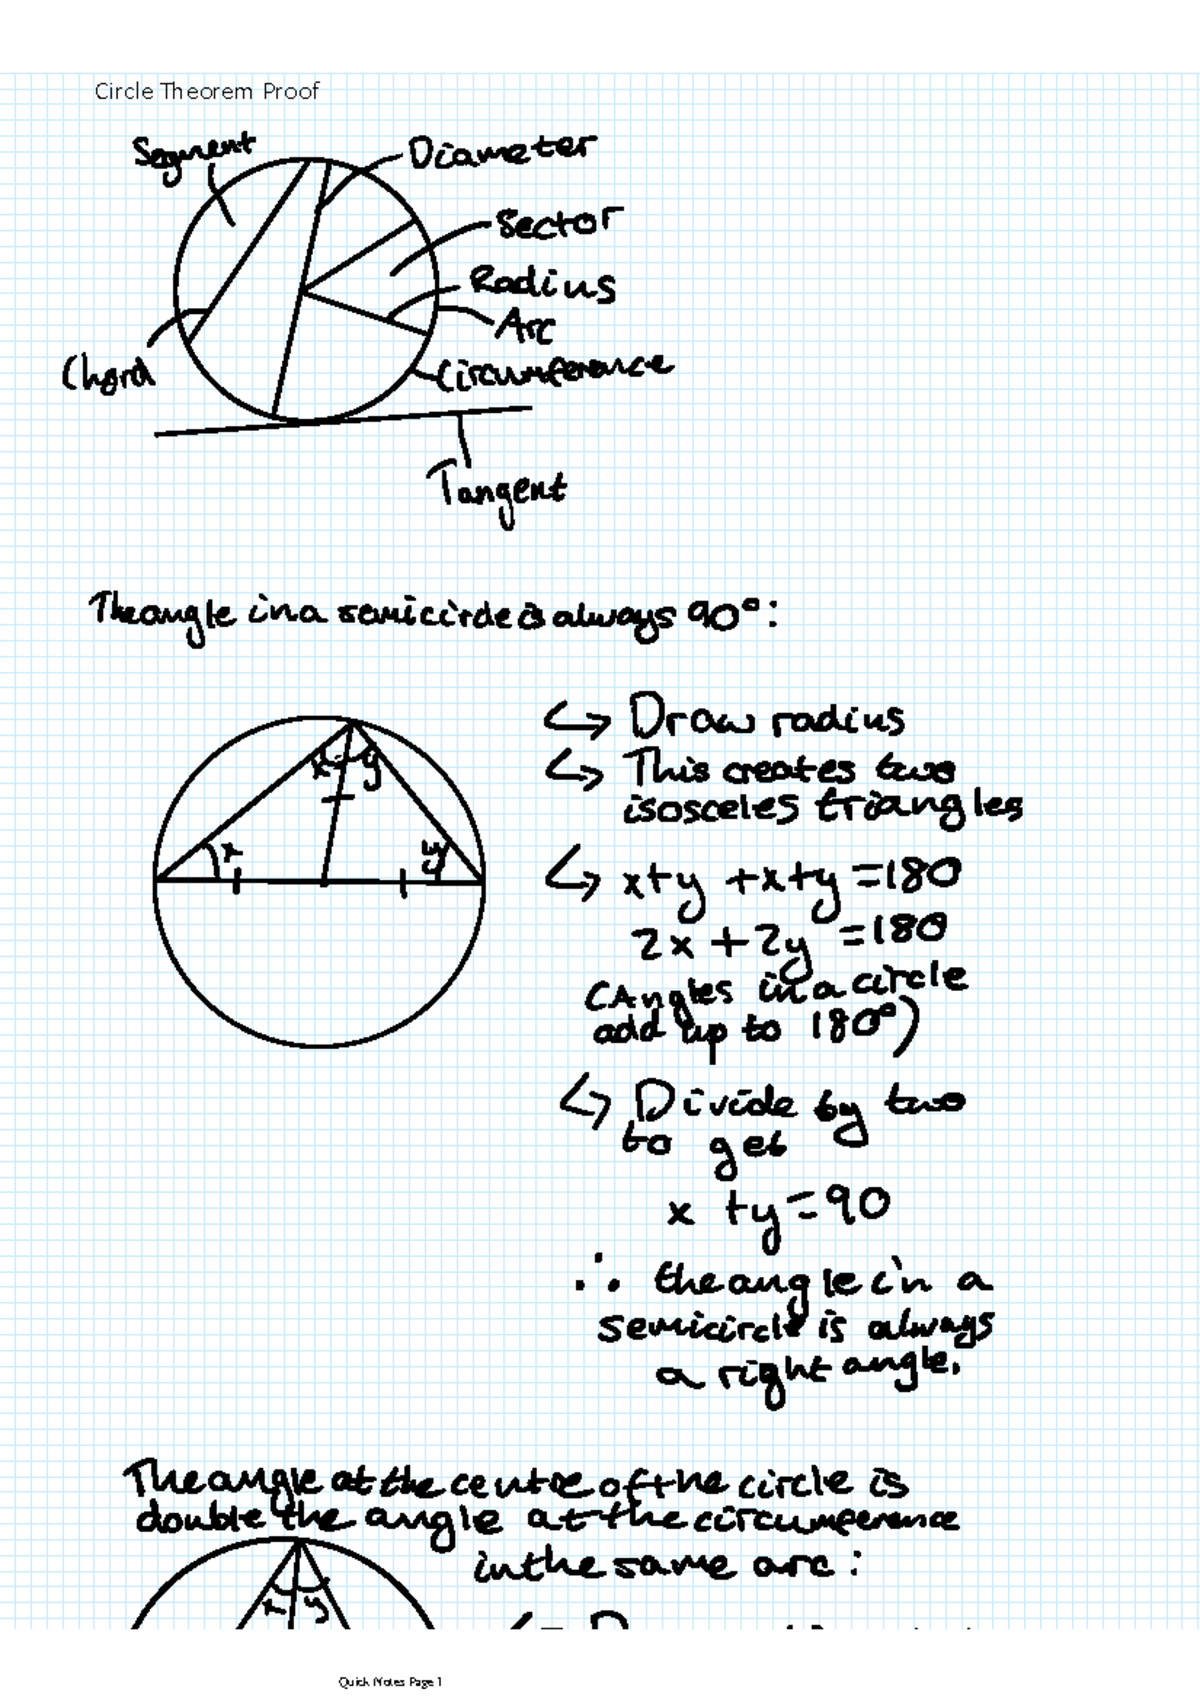 Circle Theorem Proof
Segment
Diameter
Sector
Radius
Arc
Chord
Circumference
Tangent
The angle in a semicircle is always 90°:
x y
x y
↳ Draw radius
↳ This creates two
isosceles triangles
↳ x+y +x+y =180
2x +2y =180
(Angles in a circle
add up to 180°)
↳ Divide by two
to get
x +y=90
∴ the angle in a
semicircle is always
a right angle.
The angle at the centre of the circle is
double the angle at the circumference
in the same arc:
x y
Quick Notes Page 1